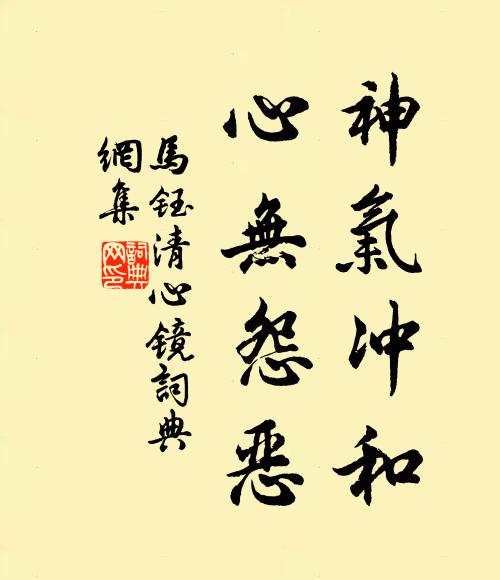 神氣沖和
心無怨惡
馬鈺清心鏡詞典
網集
詞典網印